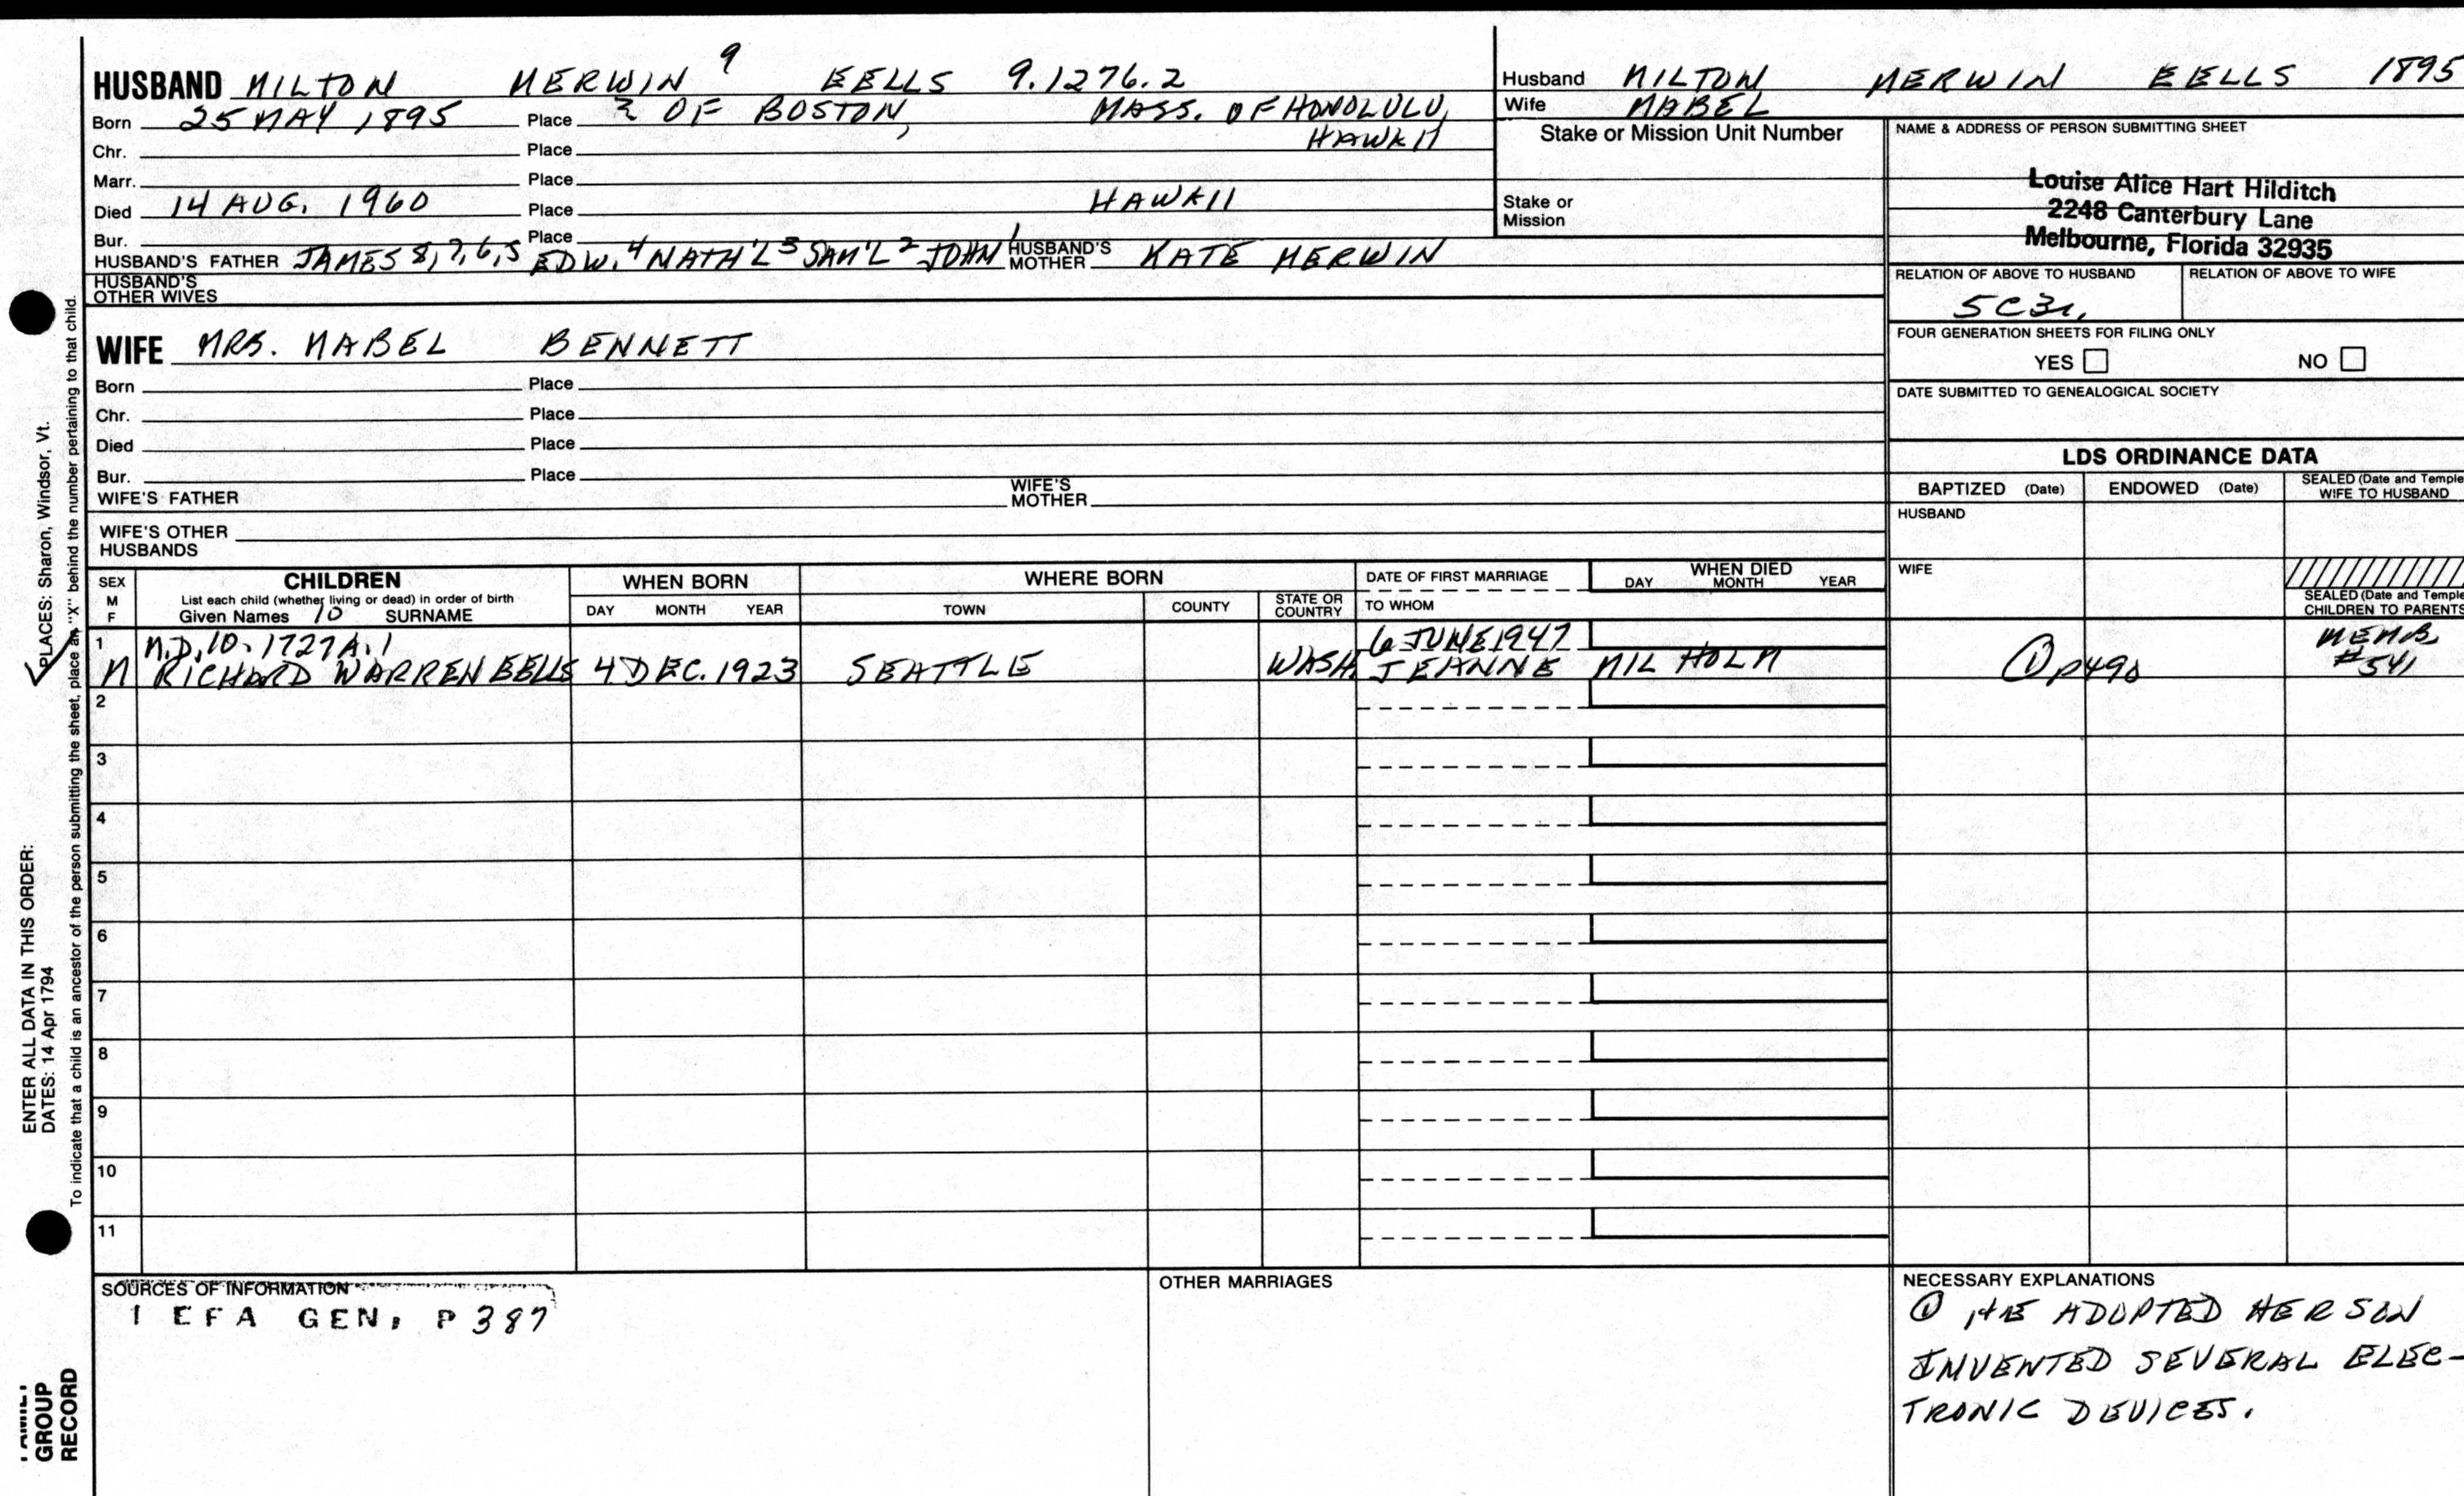 HUSBAND MILTON MERWIN 9 EELLS 9.1276.2
Born 25 MAY 1895 Place ? OF BOSTON, MASS. OF HONOLULU,
HAWAII
Chr. Place
Marr. Place
Died 14 AUG. 1960 Place HAWAII
Bur. Place
HUSBAND'S FATHER JAMES 8,7,6,5 EDW. 4 NATH'L 3 SAM'L 2 JOHN 1 HUSBAND'S MOTHER KATE MERWIN
HUSBAND'S
OTHER WIVES
WIFE MRS. MABEL BENNETT
Born Place
Chr. Place
Died Place
Bur. Place
WIFE'S FATHER WIFE'S MOTHER
WIFE'S OTHER
HUSBANDS
Husband MILTON MERWIN EELLS 1895
Wife MABEL
Stake or Mission Unit Number
Stake or
Mission
NAME & ADDRESS OF PERSON SUBMITTING SHEET
Louise Alice Hart Hilditch
2248 Canterbury Lane
Melbourne, Florida 32935
RELATION OF ABOVE TO HUSBAND RELATION OF ABOVE TO WIFE
5C3r.
FOUR GENERATION SHEETS FOR FILING ONLY
YES NO
DATE SUBMITTED TO GENEALOGICAL SOCIETY
LDS ORDINANCE DATA
BAPTIZED (Date) ENDOWED (Date) SEALED (Date and Temple
WIFE TO HUSBAND
HUSBAND
WIFE
SEALED (Date and Temple
CHILDREN TO PARENTS
SEX
M
F
CHILDREN
List each child (whether living or dead) in order of birth
Given Names 10 SURNAME
WHEN BORN
DAY MONTH YEAR
WHERE BORN
TOWN COUNTY STATE OR COUNTRY
DATE OF FIRST MARRIAGE
TO WHOM
WHEN DIED
DAY MONTH YEAR
1 N.D. 10.1727A.1 6 JUNE 1947 MEMB.
M RICHARD WARREN EELLS 4 DEC. 1923 SEATTLE WASH. JEANNE MILHOLM ① p490 #541
2
3
4
5
6
7
8
9
10
11
SOURCES OF INFORMATION
1 EFA GEN. P 387
OTHER MARRIAGES
NECESSARY EXPLANATIONS
① HE ADOPTED HER SON
INVENTED SEVERAL ELEC-
TRONIC DEVICES.
PLACES: Sharon, Windsor, Vt.
ENTER ALL DATA IN THIS ORDER:
DATES: 14 Apr 1794
To indicate that a child is an ancestor of the person submitting the sheet, place an "X" behind the number pertaining to that child.
FAMILY
GROUP
RECORD